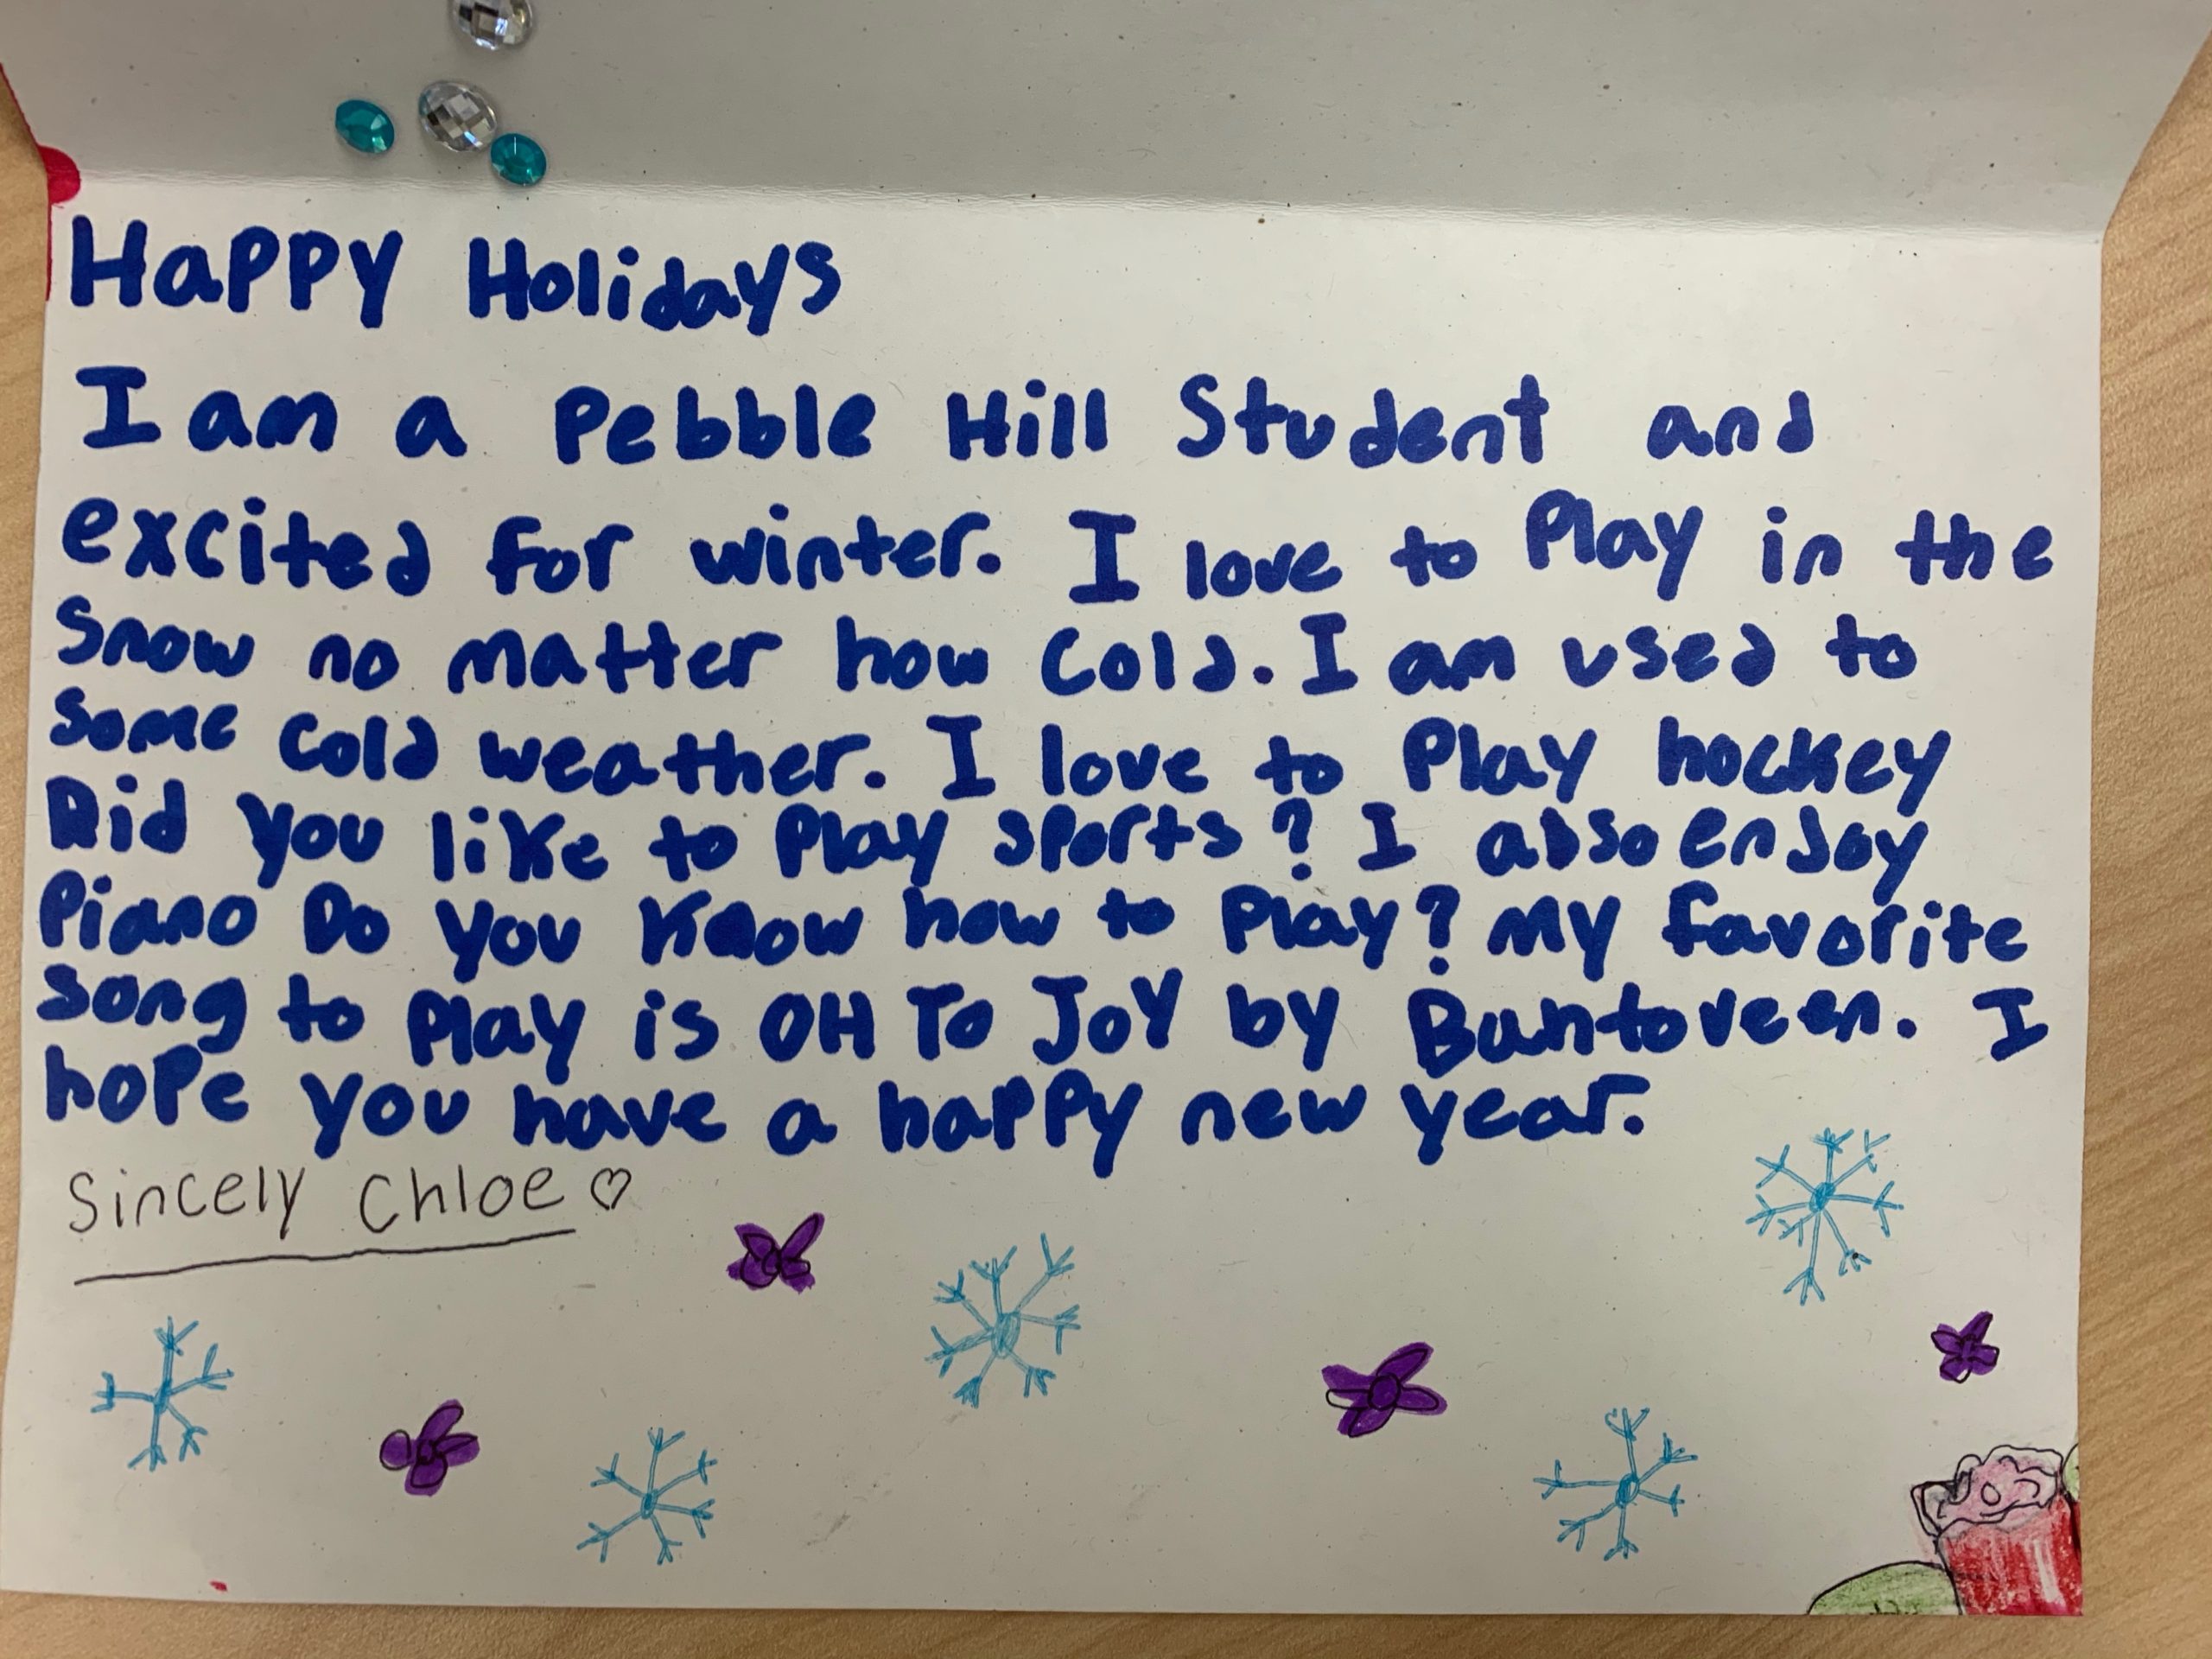 Happy Holidays
I am a Pebble Hill Student and
excited for winter. I love to Play in the
Snow no matter how Cold. I am used to
Some Cold weather. I love to Play hockey
Did you like to Play sports? I also enJoy
Piano Do you Know how to Play? My favorite
song to Play is OH To JoY by Buhtoveen. I
hope you have a happy new year.
Sincely Chloe